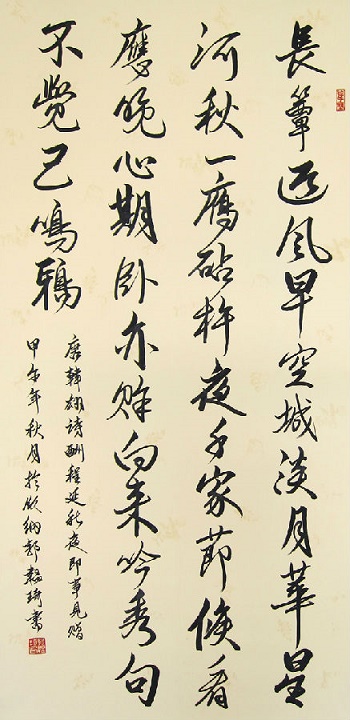 長簟迎風早空城淡月華星
河秋一鴈砧杵夜千家節候看
應晚心期卧亦賒向来吟秀句
不覺已鳴鴉
唐韓翃詩酬程延秋夜即事見贈
甲午年秋月於
書